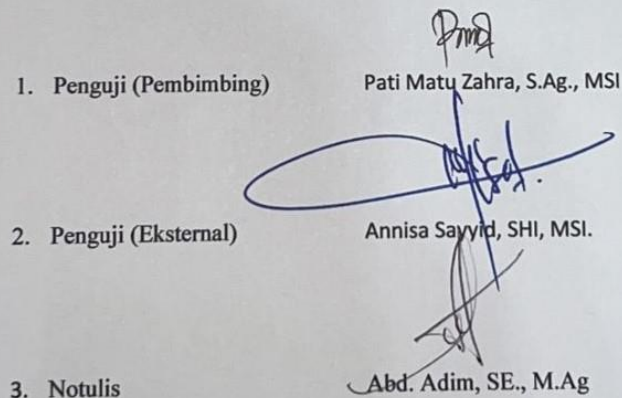 1. Penguji (Pembimbing) Pati Matu Zahra, S.Ag., MSI
2. Penguji (Eksternal) Annisa Sayyid, SHI, MSI.
3. Notulis Abd. Adim, SE., M.Ag